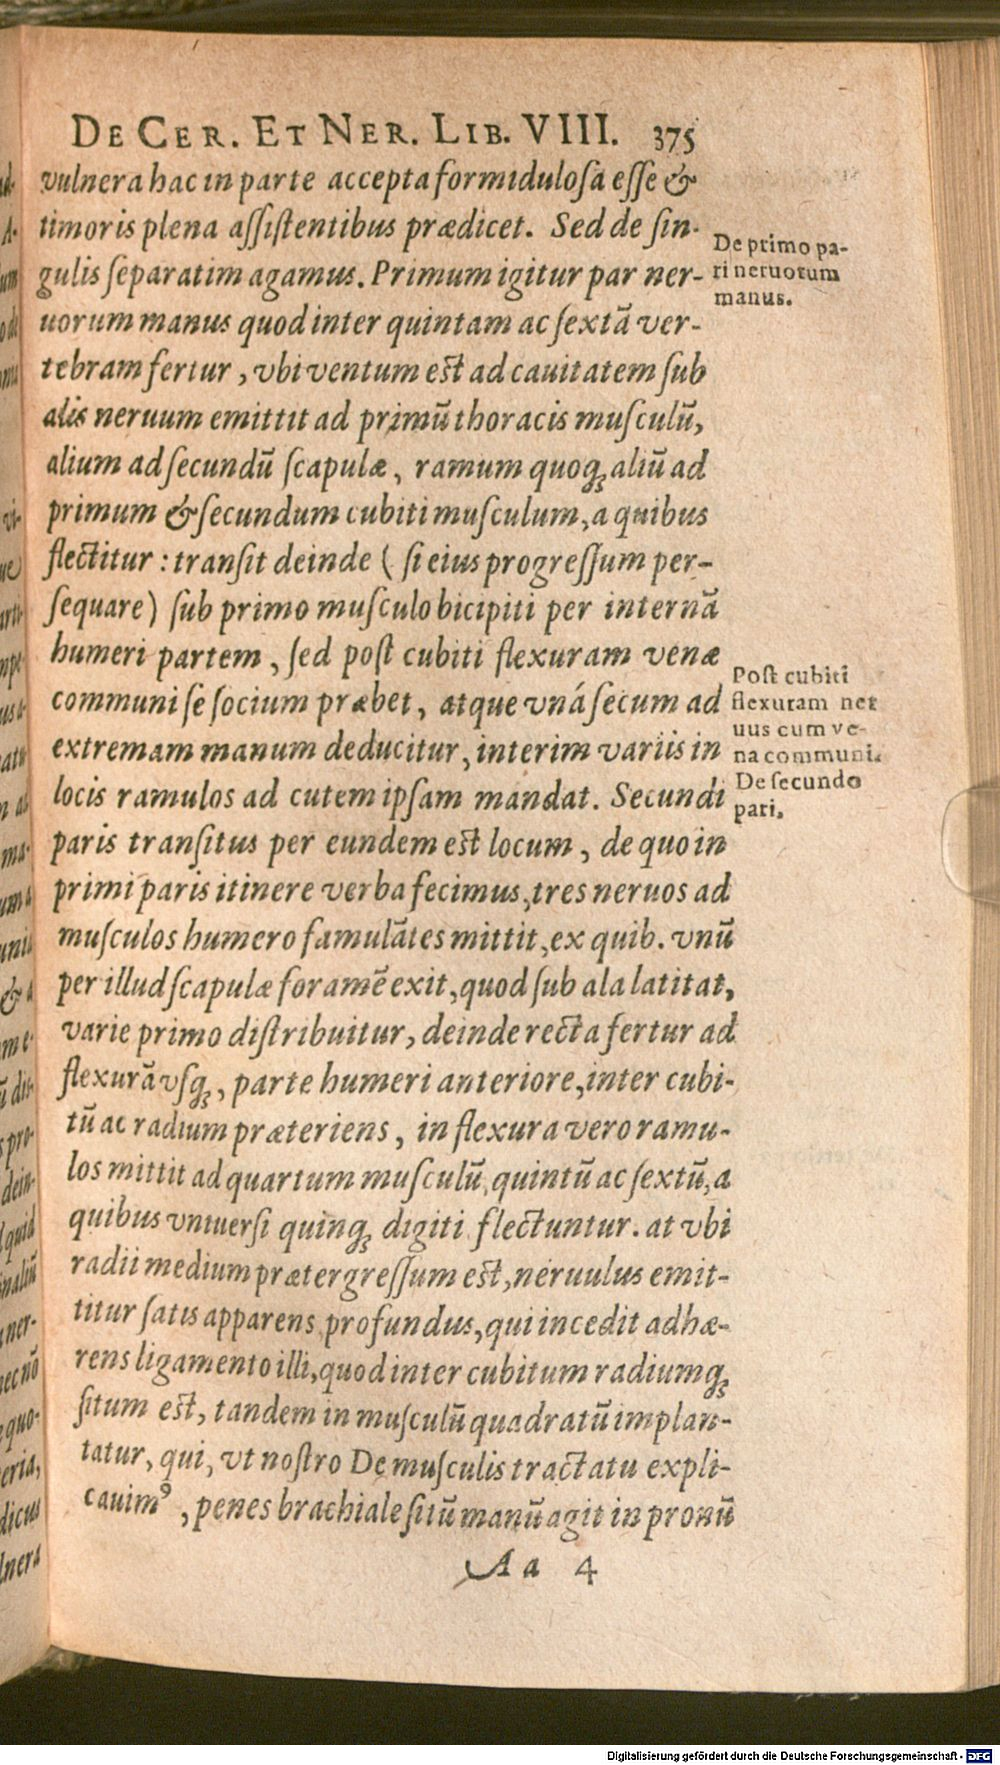 DE CER. ET NER. LIB. VIII. 375
vulnera hac in parte accepta formidulosa esse &
timoris plena assistentibus prædicet. Sed de sin-
gulis separatim agamus. Primum igitur par ner-
uorum manus quod inter quintam ac sextã ver-
tebram fertur, vbi ventum est ad cauitatem sub
alis neruum emittit ad primũ thoracis musculũ,
alium ad secundũ scapulæ, ramum quoq; aliũ ad
primum & secundum cubiti musculum, a quibus
flectitur: transit deinde (si eius progressum per-
sequare) sub primo musculo bicipiti per internã
humeri partem, sed post cubiti flexuram venæ
communi se socium præbet, atque vná secum ad
extremam manum deducitur, interim variis in
locis ramulos ad cutem ipsam mandat. Secundi
paris transitus per eundem est locum, de quo in
primi paris itinere verba fecimus, tres neruos ad
musculos humero famulãtes mittit, ex quib. vnũ
per illud scapulæ foramẽ exit, quod sub ala latitat,
varie primo distribuitur, deinde recta fertur ad
flexurã vsq;, parte humeri anteriore, inter cubi-
tũ ac radium præteriens, in flexura vero ramu-
los mittit ad quartum musculũ, quintũ ac sextũ, a
quibus vniuersi quinq; digiti flectuntur. at vbi
radii medium prætergressum est, neruulus emit-
titur satis apparens profundus, qui incedit adhæ-
rens ligamento illi, quod inter cubitum radiumq;
situm est, tandem in musculũ quadratũ implan-
tatur, qui, vt nostro De musculis tractatu expli-
cauimꝰ, penes brachiale sitũ manũ agit in pronũ
Aa 4
De primo pa-
ri neruorum
manus.
Post cubiti
flexuram ner
uus cum ve-
na communi.
De secundo
pari.
Digitalisierung gefördert durch die Deutsche Forschungsgemeinschaft - DFG